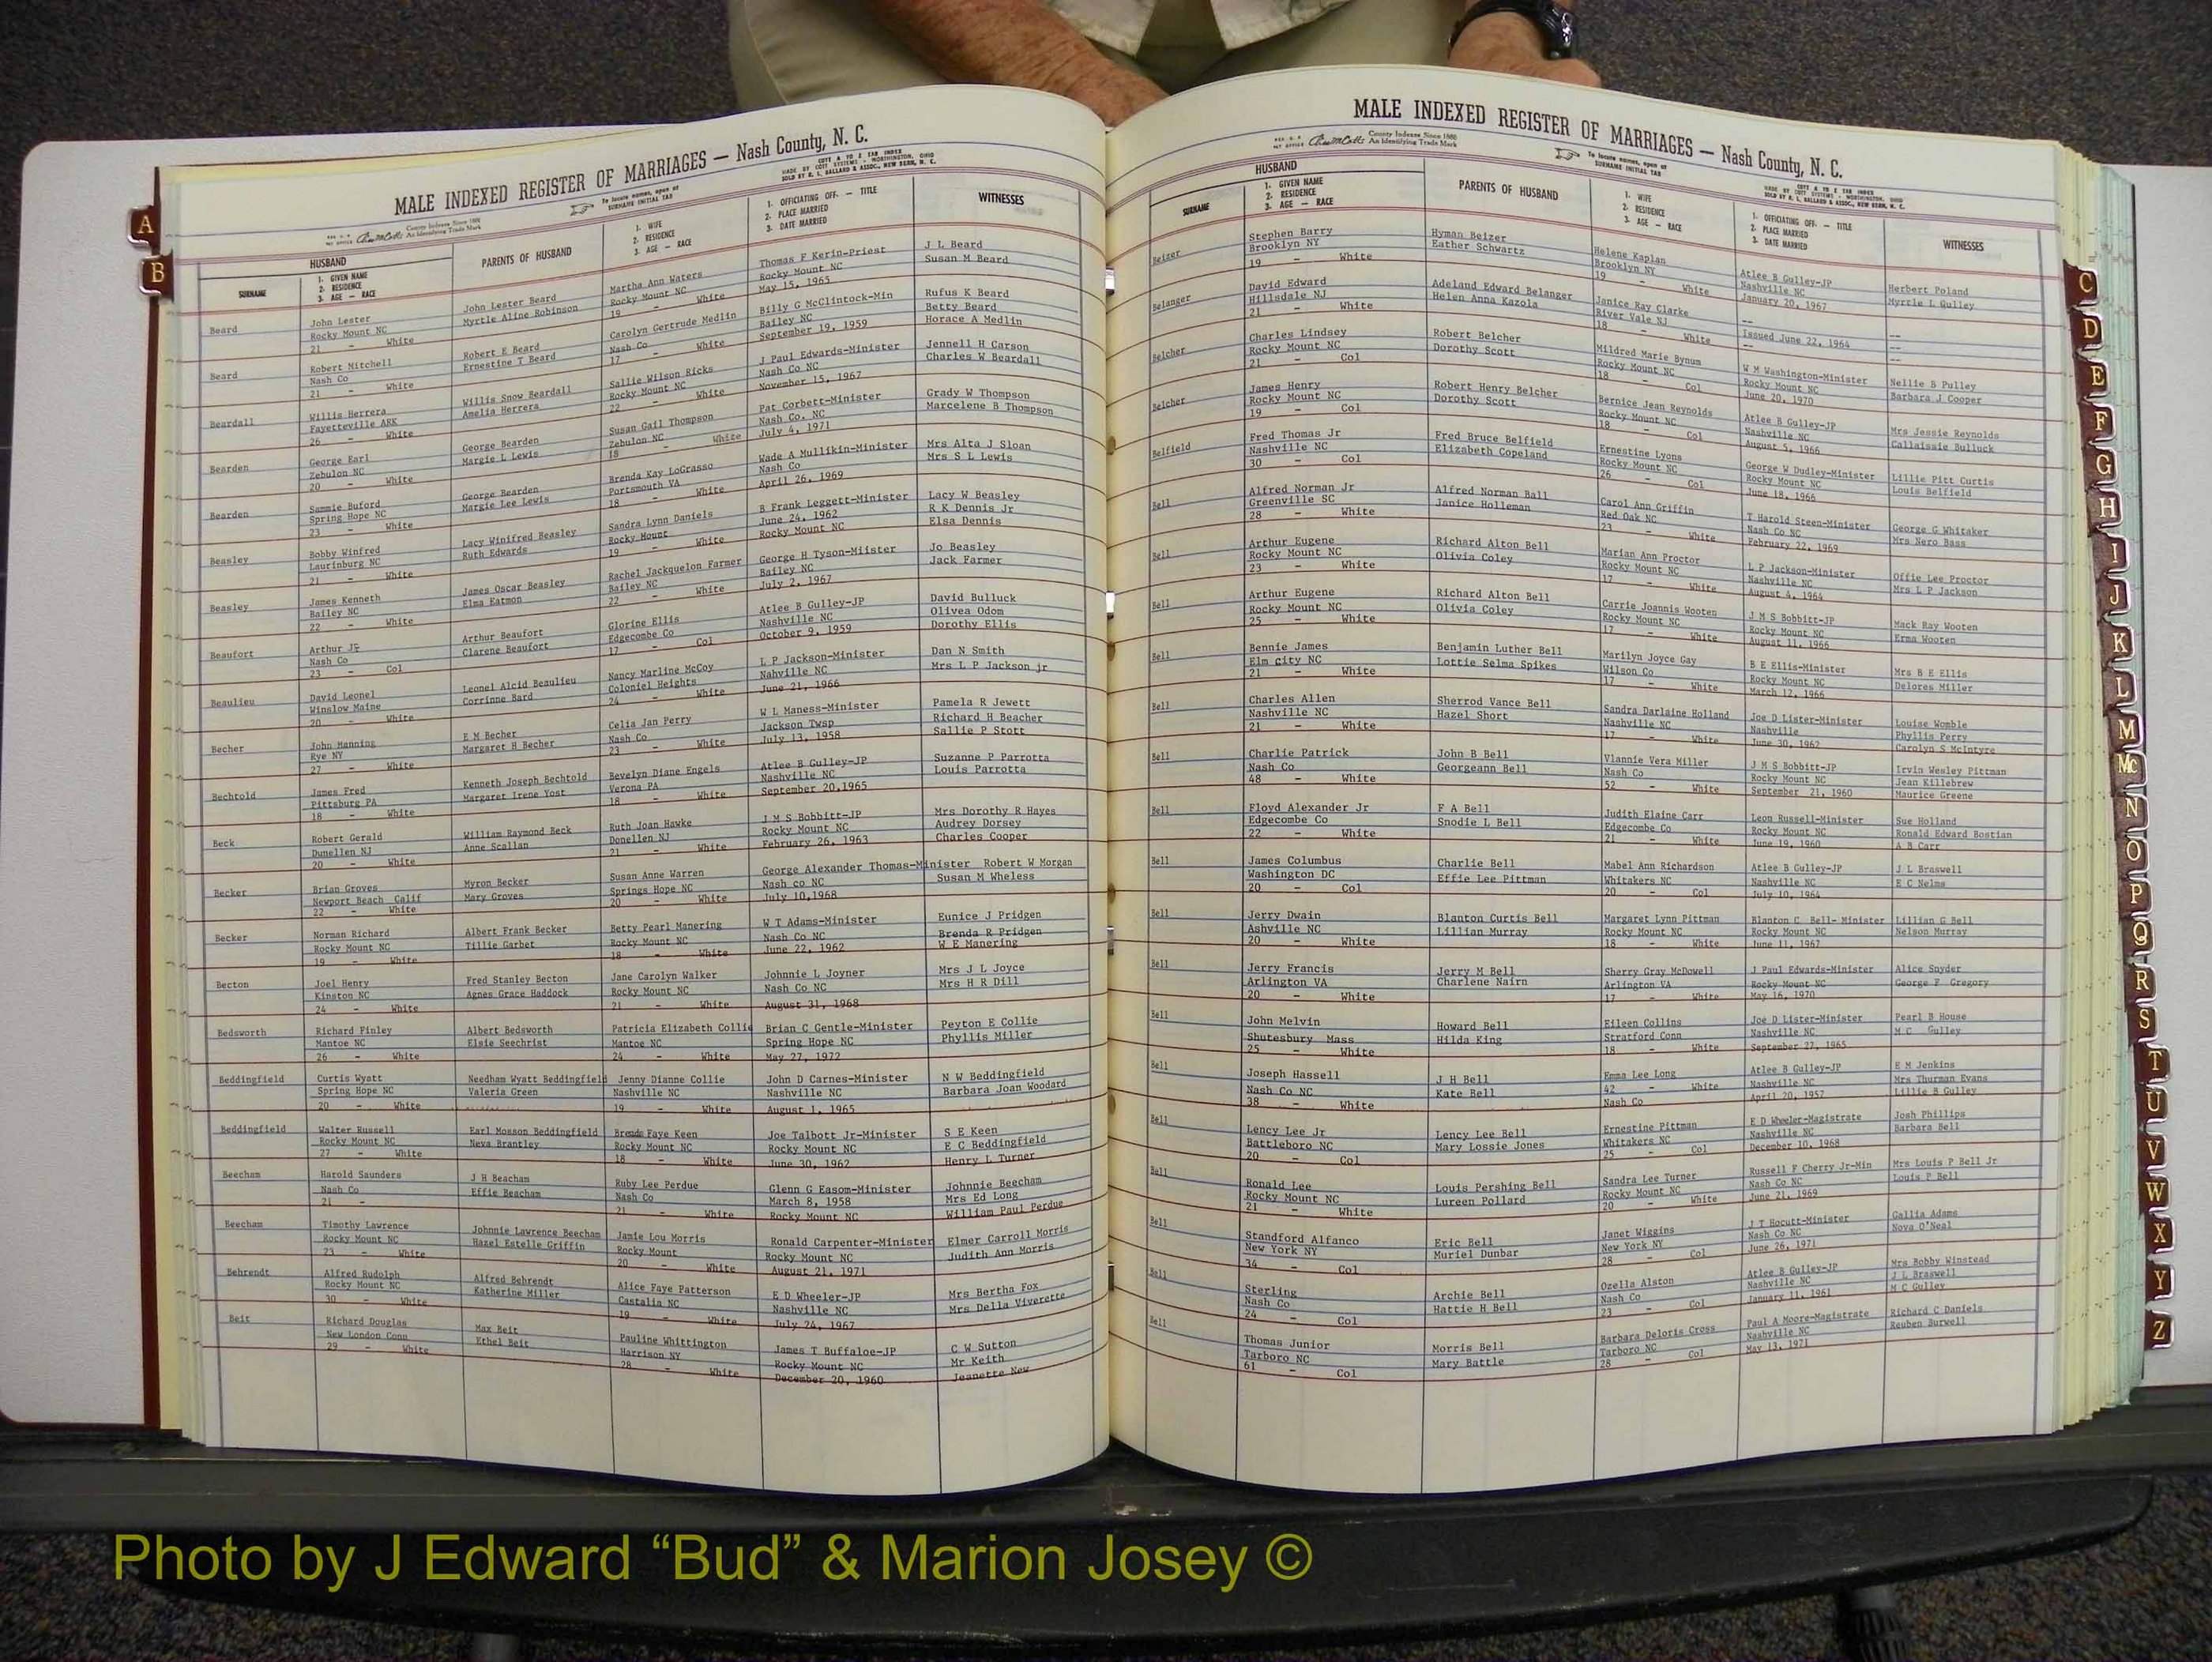 MALE INDEXED REGISTER OF MARRIAGES — Nash County, N. C.
County Indexes Since 1888
An Identifying Trade Mark
To locate names, open at
SURNAME INITIAL TAB
MADE BY COTT SYSTEMS - WORTHINGTON, OHIO
SOLD BY R. L. BALLARD & ASSOC., NEW BERN, N. C.
HUSBAND
SURNAME
1. GIVEN NAME
2. RESIDENCE
3. AGE — RACE
PARENTS OF HUSBAND
1. WIFE
2. RESIDENCE
3. AGE — RACE
1. OFFICIATING OFF. — TITLE
2. PLACE MARRIED
3. DATE MARRIED
WITNESSES
Beard John Lester John Lester Beard Martha Ann Waters Thomas F Kerin-Priest J L Beard
Rocky Mount NC Myrtle Aline Robinson Rocky Mount NC Rocky Mount NC Susan M Beard
21 - White 19 - White May 15, 1965
Beard Robert Mitchell Robert E Beard Carolyn Gertrude Medlin Billy G McClintock-Min Rufus K Beard
Nash Co Ernestine T Beard Nash Co Bailey NC Betty Beard
21 - White 17 - White September 19, 1959 Horace A Medlin
Beardall Willis Herrera Willis Snow Beardall Sallie Wilson Ricks J Paul Edwards-Minister Jennell H Carson
Fayetteville ARK Amelia Herrera Rocky Mount NC Nash Co NC Charles W Beardall
26 - White 22 - White November 15, 1967
Bearden George Earl George Bearden Susan Gail Thompson Pat Corbett-Minister Grady W Thompson
Zebulon NC Margie L Lewis Zebulon NC Nash Co. NC Marcelene B Thompson
20 - White 18 - White July 4, 1971
Bearden Sammie Buford George Bearden Brenda Kay LoGrasso Wade A Mullikin-Minister Mrs Alta J Sloan
Spring Hope NC Margie Lee Lewis Portsmouth VA Nash Co Mrs S L Lewis
23 - White 18 - White April 26, 1969
Beasley Bobby Winfred Lacy Winifred Beasley Sandra Lynn Daniels B Frank Leggett-Minister Lacy W Beasley
Laurinburg NC Ruth Edwards Rocky Mount June 24, 1962 R K Dennis Jr
21 - White 19 - White Rocky Mount NC Elsa Dennis
Beasley James Kenneth James Oscar Beasley Rachel Jacquelon Farmer George H Tyson-Miister Jo Beasley
Bailey NC Elma Eatmon Bailey NC Bailey NC Jack Farmer
22 - White 22 - White July 2, 1967
Beaufort Arthur JR Arthur Beaufort Glorine Ellis Atlee B Gulley-JP David Bulluck
Nash Co Clarene Beaufort Edgecombe Co Nashville NC Olivea Odom
23 - Col 17 - Col October 9, 1959 Dorothy Ellis
Beaulieu David Leonel Leonel Alcid Beaulieu Nancy Marline McCoy L P Jackson-Minister Dan N Smith
Winslow Maine Corrinne Bard Coloniel Heights Nahville NC Mrs L P Jackson jr
20 - White 24 - White June 21, 1966
Becher John Manning E M Becher Celia Jan Perry W L Maness-Minister Pamela R Jewett
Rye NY Margaret H Becher Nash Co Jackson Twsp Richard H Beacher
27 - White 23 - White July 13, 1958 Sallie P Stott
Bechtold James Fred Kenneth Joseph Bechtold Bevelyn Diane Engels Atlee B Gulley-JP Suzanne P Parrotta
Pittsburg PA Margaret Irene Yost Verona PA Nashville NC Louis Parrotta
18 - White 18 - White September 20,1965
Beck Robert Gerald William Raymond Beck Ruth Joan Hawke J M S Bobbitt-JP Mrs Dorothy R Hayes
Dunellen NJ Anne Scallan Donellen NJ Rocky Mount NC Audrey Dorsey
20 - White 21 - White February 26, 1963 Charles Cooper
Becker Brian Groves Myron Becker Susan Anne Warren George Alexander Thomas-Minister Robert W Morgan
Newport Beach Calif Mary Groves Springs Hope NC Nash co NC Susan M Wheless
22 - White 20 - White July 10,1968
Becker Norman Richard Albert Frank Becker Betty Pearl Manering W T Adams-Minister Eunice J Pridgen
Rocky Mount NC Tillie Garbet Rocky Mount NC Nash Co NC Brenda R Pridgen
19 - White 18 - White June 22, 1962 W E Manering
Becton Joel Henry Fred Stanley Becton Jane Carolyn Walker Johnnie L Joyner Mrs J L Joyce
Kinston NC Agnes Grace Haddock Rocky Mount NC Nash Co NC Mrs H R Dill
24 - White 21 - White August 31, 1968
Bedsworth Richard Finley Albert Bedsworth Patricia Elizabeth Collie Brian C Gentle-Minister Peyton E Collie
Mantoe NC Elsie Seechrist Mantoe NC Spring Hope NC Phyllis Miller
26 - White 24 - White May 27, 1972
Beddingfield Curtis Wyatt Needham Wyatt Beddingfield Jenny Dianne Collie John D Carnes-Minister N W Beddingfield
Spring Hope NC Valeria Green Nashville NC Nashville NC Barbara Joan Woodard
20 - White 19 - White August 1, 1965
Beddingfield Walter Russell Earl Mosson Beddingfield Brenda Faye Keen Joe Talbott Jr-Minister S E Keen
Rocky Mount NC Neva Brantley Rocky Mount NC Rocky Mount NC E C Beddingfield
27 - White 18 - White June 30, 1962 Henry L Turner
Beecham Harold Saunders J H Beacham Ruby Lee Perdue Glenn G Easom-Minister Johnnie Beecham
Nash Co Effie Beacham Nash Co March 8, 1958 Mrs Ed Long
21 - 21 - White Rocky Mount NC William Paul Perdue
Beecham Timothy Lawrence Johnnie Lawrence Beecham Jamie Lou Morris Ronald Carpenter-Minister Elmer Carroll Morris
Rocky Mount NC Hazel Estelle Griffin Rocky Mount Rocky Mount NC Judith Ann Morris
23 - White 20 - White August 21, 1971
Behrendt Alfred Rudolph Alfred Behrendt Alice Faye Patterson E D Wheeler-JP Mrs Bertha Fox
Rocky Mount NC Katherine Miller Castalia NC Nashville NC Mrs Della Viverette
30 - White 19 - White July 24, 1967
Beit Richard Douglas Max Beit Pauline Whittington James T Buffaloe-JP C W Sutton
New London Conn Ethel Beit Harrison NY Rocky Mount NC Mr Keith
29 - White 28 - White December 20, 1960 Jeanette New
MALE INDEXED REGISTER OF MARRIAGES — Nash County, N. C.
County Indexes Since 1888
An Identifying Trade Mark
To locate names, open at
SURNAME INITIAL TAB
MADE BY COTT SYSTEMS - WORTHINGTON, OHIO
SOLD BY R. L. BALLARD & ASSOC., NEW BERN, N. C.
HUSBAND
SURNAME
1. GIVEN NAME
2. RESIDENCE
3. AGE — RACE
PARENTS OF HUSBAND
1. WIFE
2. RESIDENCE
3. AGE — RACE
1. OFFICIATING OFF. — TITLE
2. PLACE MARRIED
3. DATE MARRIED
WITNESSES
Beizer Stephen Barry Hyman Beizer Helene Kaplan Atlee B Gulley-JP Herbert Poland
Brooklyn NY Eather Schwartz Brooklyn NY Nashville NC Myrtle L Gulley
19 - White 19 - White January 20, 1967
Belanger David Edward Adeland Edward Belanger Janice Ray Clarke -- --
Hillsdale NJ Helen Anna Kazola River Vale NJ Issued June 22, 1964 --
21 - White 18 - White -- --
Belcher Charles Lindsey Robert Belcher Mildred Marie Bynum W M Washington-Minister Nellie B Pulley
Rocky Mount NC Dorothy Scott Rocky Mount NC Rocky Mount NC Barbara J Cooper
21 - Col 18 - Col June 20, 1970
Belcher James Henry Robert Henry Belcher Bernice Jean Reynolds Atlee B Gulley-JP Mrs Jessie Reynolds
Rocky Mount NC Dorothy Scott Rocky Mount NC Nashville NC Callaissie Bulluck
19 - Col 18 - Col August 5, 1966
Belfield Fred Thomas Jr Fred Bruce Belfield Ernestine Lyons George W Dudley-Minister Lillie Pitt Curtis
Nashville NC Elizabeth Copeland Rocky Mount NC Rocky Mount NC Louis Belfield
30 - Col 26 - Col June 18, 1966
Bell Alfred Norman Jr Alfred Norman Ball Carol Ann Griffin T Harold Steen-Minister George G Whitaker
Greenville SC Janice Holleman Red Oak NC Nash Co NC Mrs Nero Bass
28 - White 23 - White February 22, 1969
Bell Arthur Eugene Richard Alton Bell Marian Ann Proctor L P Jackson-Minister Offie Lee Proctor
Rocky Mount NC Olivia Coley Rocky Mount NC Nashville NC Mrs L P Jackson
23 - White 17 - White August 4, 1964
Bell Arthur Eugene Richard Alton Bell Carrie Joannis Wooten J M S Bobbitt-JP Mack Ray Wooten
Rocky Mount NC Olivia Coley Rocky Mount NC Rocky Mount NC Erma Wooten
25 - White 17 - White August 11, 1966
Bell Bennie James Benjamin Luther Bell Marilyn Joyce Gay B E Ellis-Minister Mrs B E Ellis
Elm city NC Lottie Selma Spikes Wilson Co Rocky Mount NC Delores Miller
21 - White 17 - White March 12, 1966
Bell Charles Allen Sherrod Vance Bell Sandra Darlaine Holland Joe D Lister-Minister Louise Womble
Nashville NC Hazel Short Nashville NC Nashville Phyllis Perry
21 - White 17 - White June 30, 1962 Carolyn S McIntyre
Bell Charlie Patrick John B Bell Vlannie Vera Miller J M S Bobbitt-JP Irvin Wesley Pittman
Nash Co Georgeann Bell Nash Co Rocky Mount NC Jean Killebrew
48 - White 52 - White September 21, 1960 Maurice Greene
Bell Floyd Alexander Jr F A Bell Judith Elaine Carr Leon Russell-Minister Sue Holland
Edgecombe Co Snodie L Bell Edgecombe Co Rocky Mount NC Ronald Edward Bostian
22 - White 21 - White June 19, 1960 A B Carr
Bell James Columbus Charlie Bell Mabel Ann Richardson Atlee B Gulley-JP J L Braswell
Washington DC Effie Lee Pittman Whitakers NC Nashville NC E C Nelms
20 - Col 20 - Col July 10, 1964
Bell Jerry Dwain Blanton Curtis Bell Margaret Lynn Pittman Blanton C Bell- Minister Lillian G Bell
Ashville NC Lillian Murray Rocky Mount NC Rocky Mount NC Nelson Murray
20 - White 18 - White June 11, 1967
Bell Jerry Francis Jerry M Bell Sherry Gray McDowell J Paul Edwards-Minister Alice Snyder
Arlington VA Charlene Nairn Arlington VA Rocky Mount NC George F Gregory
20 - White 17 - White May 16, 1970
Bell John Melvin Howard Bell Eileen Collins Joe D Lister-Minister Pearl B House
Shutesbury Mass Hilda King Stratford Conn Nashville NC M C Gulley
25 - White 18 - White September 27, 1965
Bell Joseph Hassell J H Bell Emma Lee Long Atlee B Gulley-JP E M Jenkins
Nash Co NC Kate Bell 42 - White Nashville NC Mrs Thurman Evans
38 - White Nash Co April 20, 1957 Lillie B Gulley
Bell Lency Lee Jr Lency Lee Bell Ernestine Pittman E D Wheeler-Magistrate Josh Phillips
Battleboro NC Mary Lossie Jones Whitakers NC Nashville NC Barbara Bell
20 - Col 25 - Col December 10, 1968
Bell Ronald Lee Louis Pershing Bell Sandra Lee Turner Russell F Cherry Jr-Min Mrs Louis P Bell Jr
Rocky Mount NC Lureen Pollard Rocky Mount NC Nash Co NC Louis P Bell
21 - White 20 - White June 21, 1969
Bell Standford Alfanco Eric Bell Janet Wiggins J T Hocutt-Minister Gallia Adams
New York NY Muriel Dunbar New York NY Nash Co NC Nova O'Neal
34 - Col 28 - Col June 26, 1971
Bell Sterling Archie Bell Ozella Alston Atlee B Gulley-JP Mrs Bobby Winstead
Nash Co Hattie H Bell Nash Co Nashville NC J L Braswell
24 - Col 23 - Col January 11, 1961 M C Gulley
Bell Thomas Junior Morris Bell Barbara Deloris Cross Paul A Moore-Magistrate Richard C Daniels
Tarboro NC Mary Battle Tarboro NC Nashville NC Reuben Burwell
61 - Col 28 - Col May 13, 1971
A
B
C
D
E
F
G
H
I
J
K
L
M
Mc
N
O
P
Q
R
S
T
U
V
W
X
Y
Z
Photo by J Edward “Bud” & Marion Josey ©